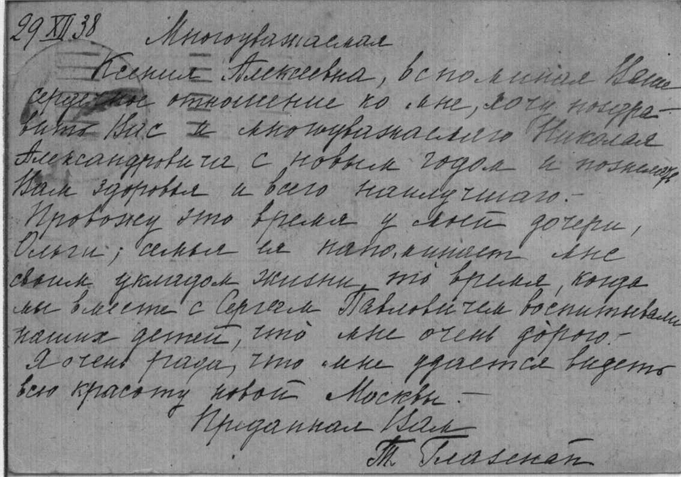 29 XII 38
Многоуважаемая
Ксения Алексеевна, вспоминая Ваше
сердечное отношение ко мне, хочу поздра-
вить Вас и многоуважаемаго Николая
Александровича с новым годом и пожелать
Вам здоровья и всего наилучшаго.-
Провожу это время у моей дочери,
Ольги; семья ея напоминает мне
своим укладом жизни то время, когда
мы вместе с Сергеем Павловичем воспитывали
наших детей, что мне очень дорого.-
Я очень рада, что мне удается видеть
всю красоту новой Москвы.-
Преданная Вам
Т. Глазенап